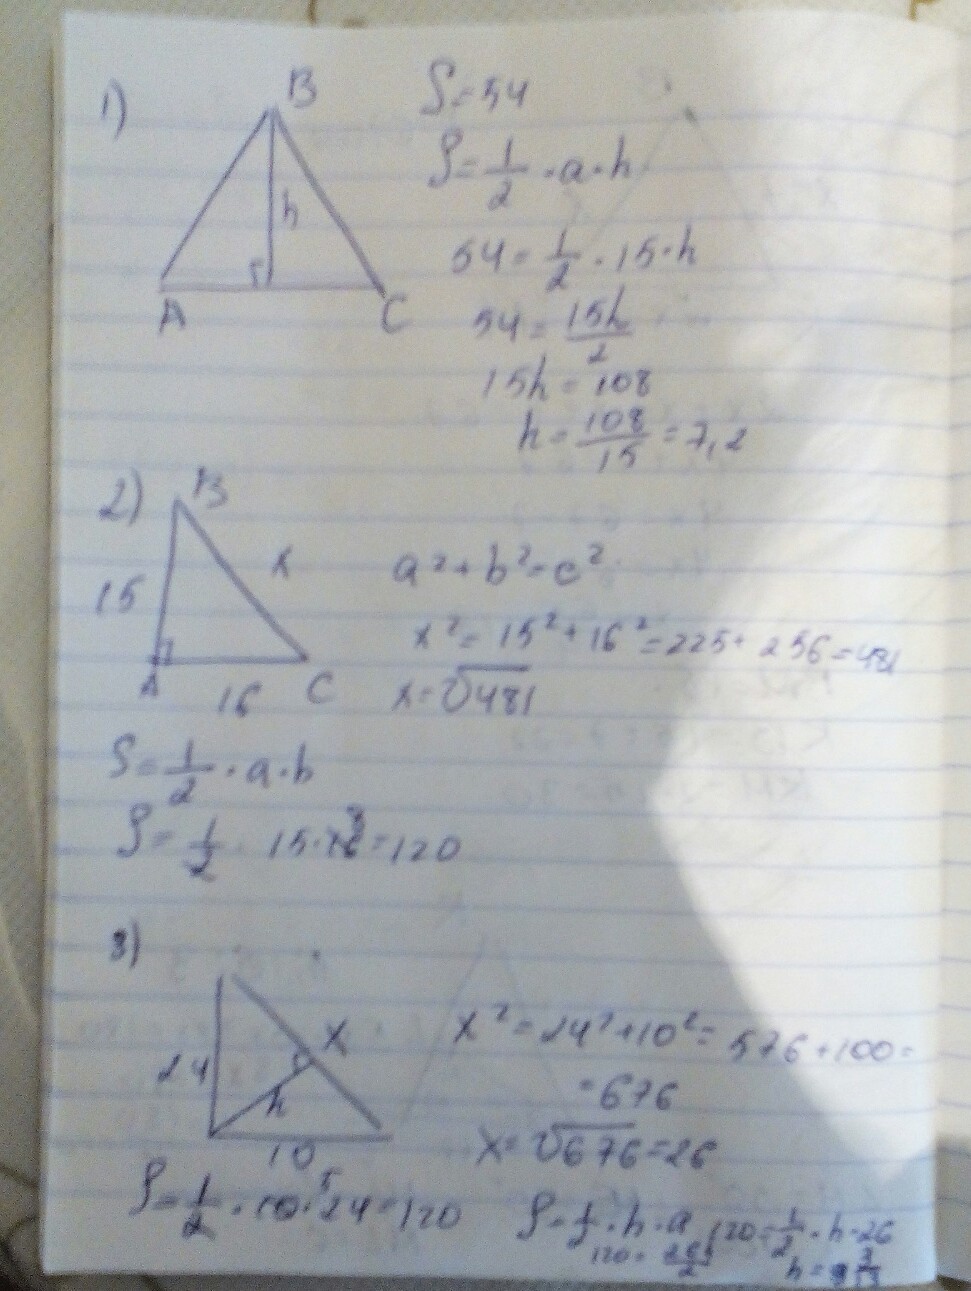 1)
B
h
A
C
S=54
S=1/2·a·h
54=1/2·15·h
54=15h/2
15h=108
h=108/15=7,2
2)
B
15
x
A
16
C
a²+b²=c²
x²=15²+16²=225+256=481
x=√481
S=1/2·a·b
S=1/2·15·16 8=120
3)
24
x
h
10
x²=24²+10²=576+100=
=676
x=√676=26
S=1/2·10 5·24=120
S=1/2·h·a
120=1/2·h·26
120=26h/2
h=9 3/13